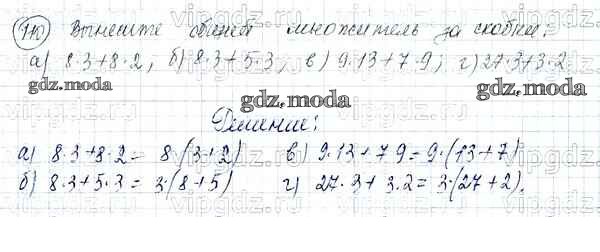 110 Вынесите общий множитель за скобки:
а) 8·3+8·2, б) 8·3+5·3, в) 9·13+7·9; г) 27·3+3·2.
gdz.moda gdz.moda gdz.moda
Решение:
а) 8·3+8·2 = 8·(3+2) в) 9·13+7·9=9·(13+7)
б) 8·3+5·3 = 3·(8+5) г) 27·3+3·2=3·(27+2).